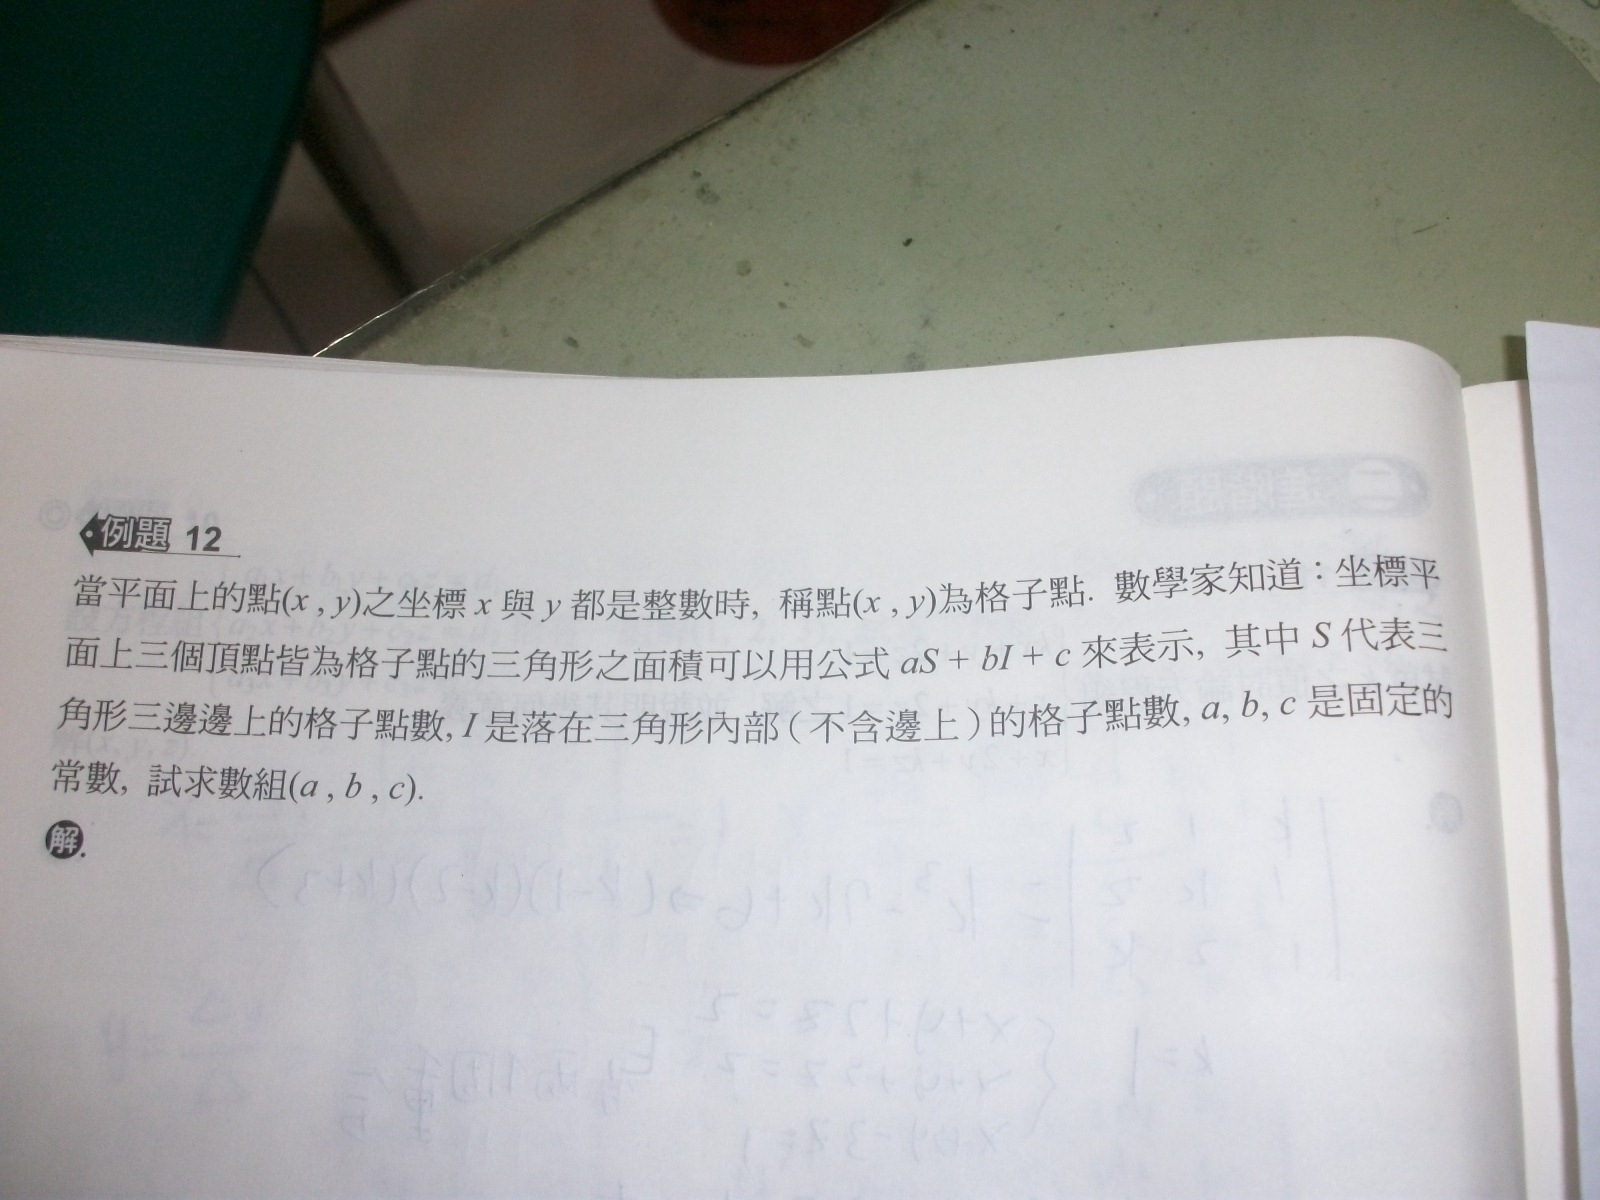 例題 12
當平面上的點(x , y)之坐標 x 與 y 都是整數時, 稱點(x , y)為格子點. 數學家知道：坐標平
面上三個頂點皆為格子點的三角形之面積可以用公式 aS + bI + c 來表示, 其中 S 代表三
角形三邊邊上的格子點數, I 是落在三角形內部 ( 不含邊上 ) 的格子點數, a, b, c 是固定的
常數, 試求數組(a , b , c).
解.